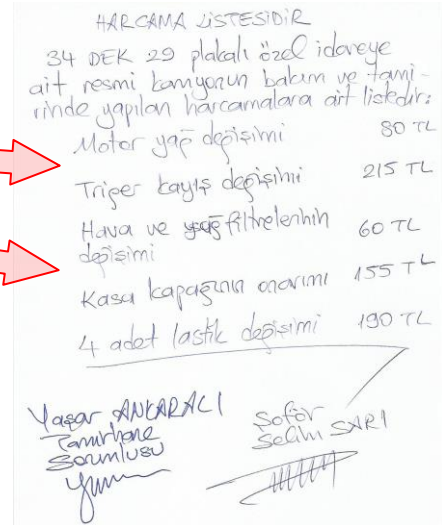 HARCAMA LİSTESİDİR
34 DEK 29 plakalı özel idareye
ait, resmi kamyonun bakım ve tami-
rinde yapılan harcamalara ait listedir:
Motor yağ değişimi 80 TL
Triger kayış değişimi 215 TL
Hava ve yağ filtrelerinin
değişimi 60 TL
Kasa kapağının onarımı 155 TL
4 adet lastik değişimi 190 TL
Yaşar ANKARACI
Tamirhane
Sorumlusu
Şoför
Selim SARI